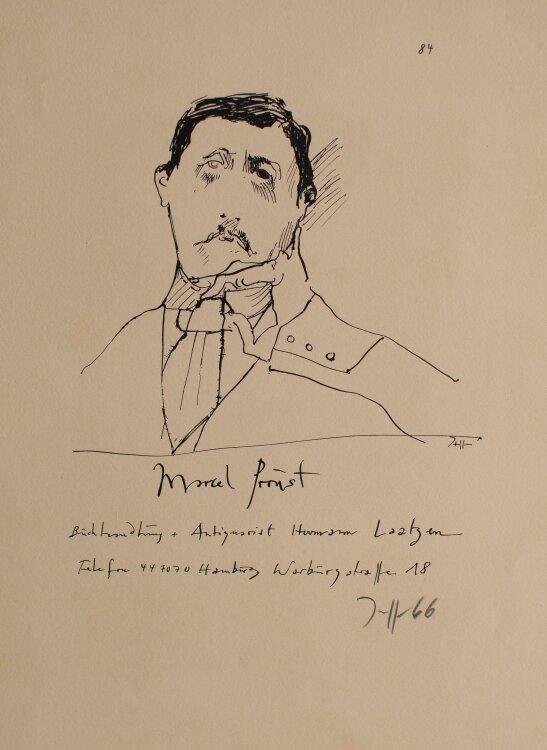 84
Marcel Proust
Buchhandlung + Antiquariat Hermann Laatzen
Telefon 447070 Hamburg Warburgstraffe 18
66